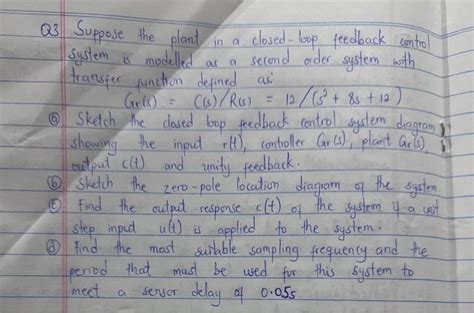 Q3 Suppose the plant in a closed-loop feedback control
system is modelled as a second order system with
transfer function defined as:
Gr(s) = C(s)/R(s) = 12/(s² + 8s + 12)
(a) Sketch the closed loop feedback control system diagram
showing the input r(t), controller Gr(s), plant Gr(s),
output c(t) and unity feedback.
(b) Sketch the zero-pole location diagram of the system
(c) Find the output response c(t) of the system if a unit
step input u(t) is applied to the system.
(d) Find the most suitable sampling frequency and the
period that must be used for this system to
meet a sensor delay of 0.05s